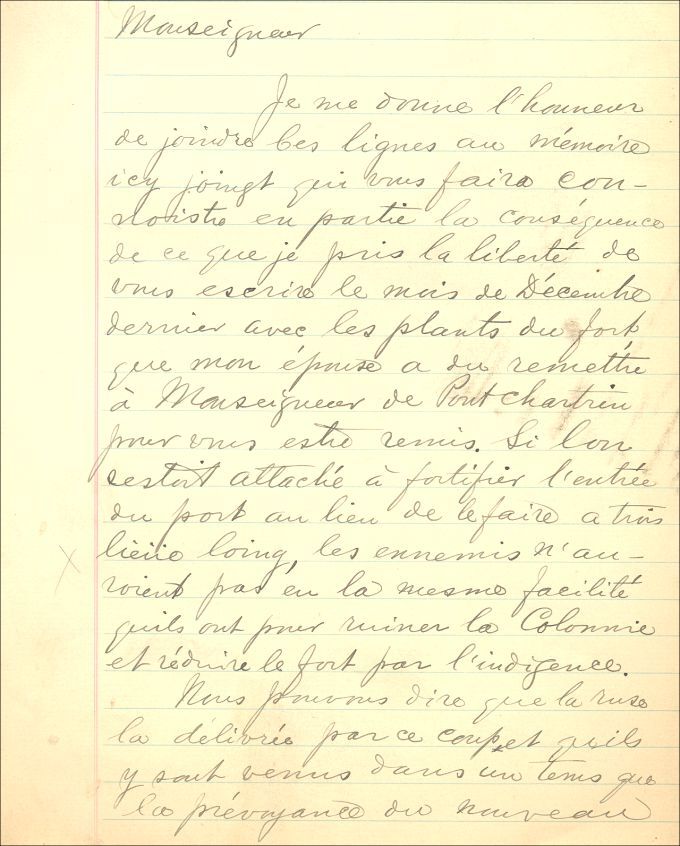 Monseigneur
Je me donne l'honneur
de joindre ces lignes au mémoire
icy joingt qui vous faira con-
noistre en partie la conséquence
de ce que je pris la liberté de
vous escrire le mois de Décembre
dernier avec les plants du fort
que mon épouse a du remettre
à Monseigneur de Pontchartrin
pour vous estre remis. Si lon
sestoit attaché à fortifier l'entrée
du port au lieu de le faire a trois
lieüe loing, les ennemis n'au-
roient pas eu la mesme facilité
quils ont pour ruiner la Colonnie
et réduire le fort par l'indigence.
Nous pouvons dire que la ruse
la délivrée par ce coup, et quils
y sont venus dans un tems que
la prévoyance du nouveau